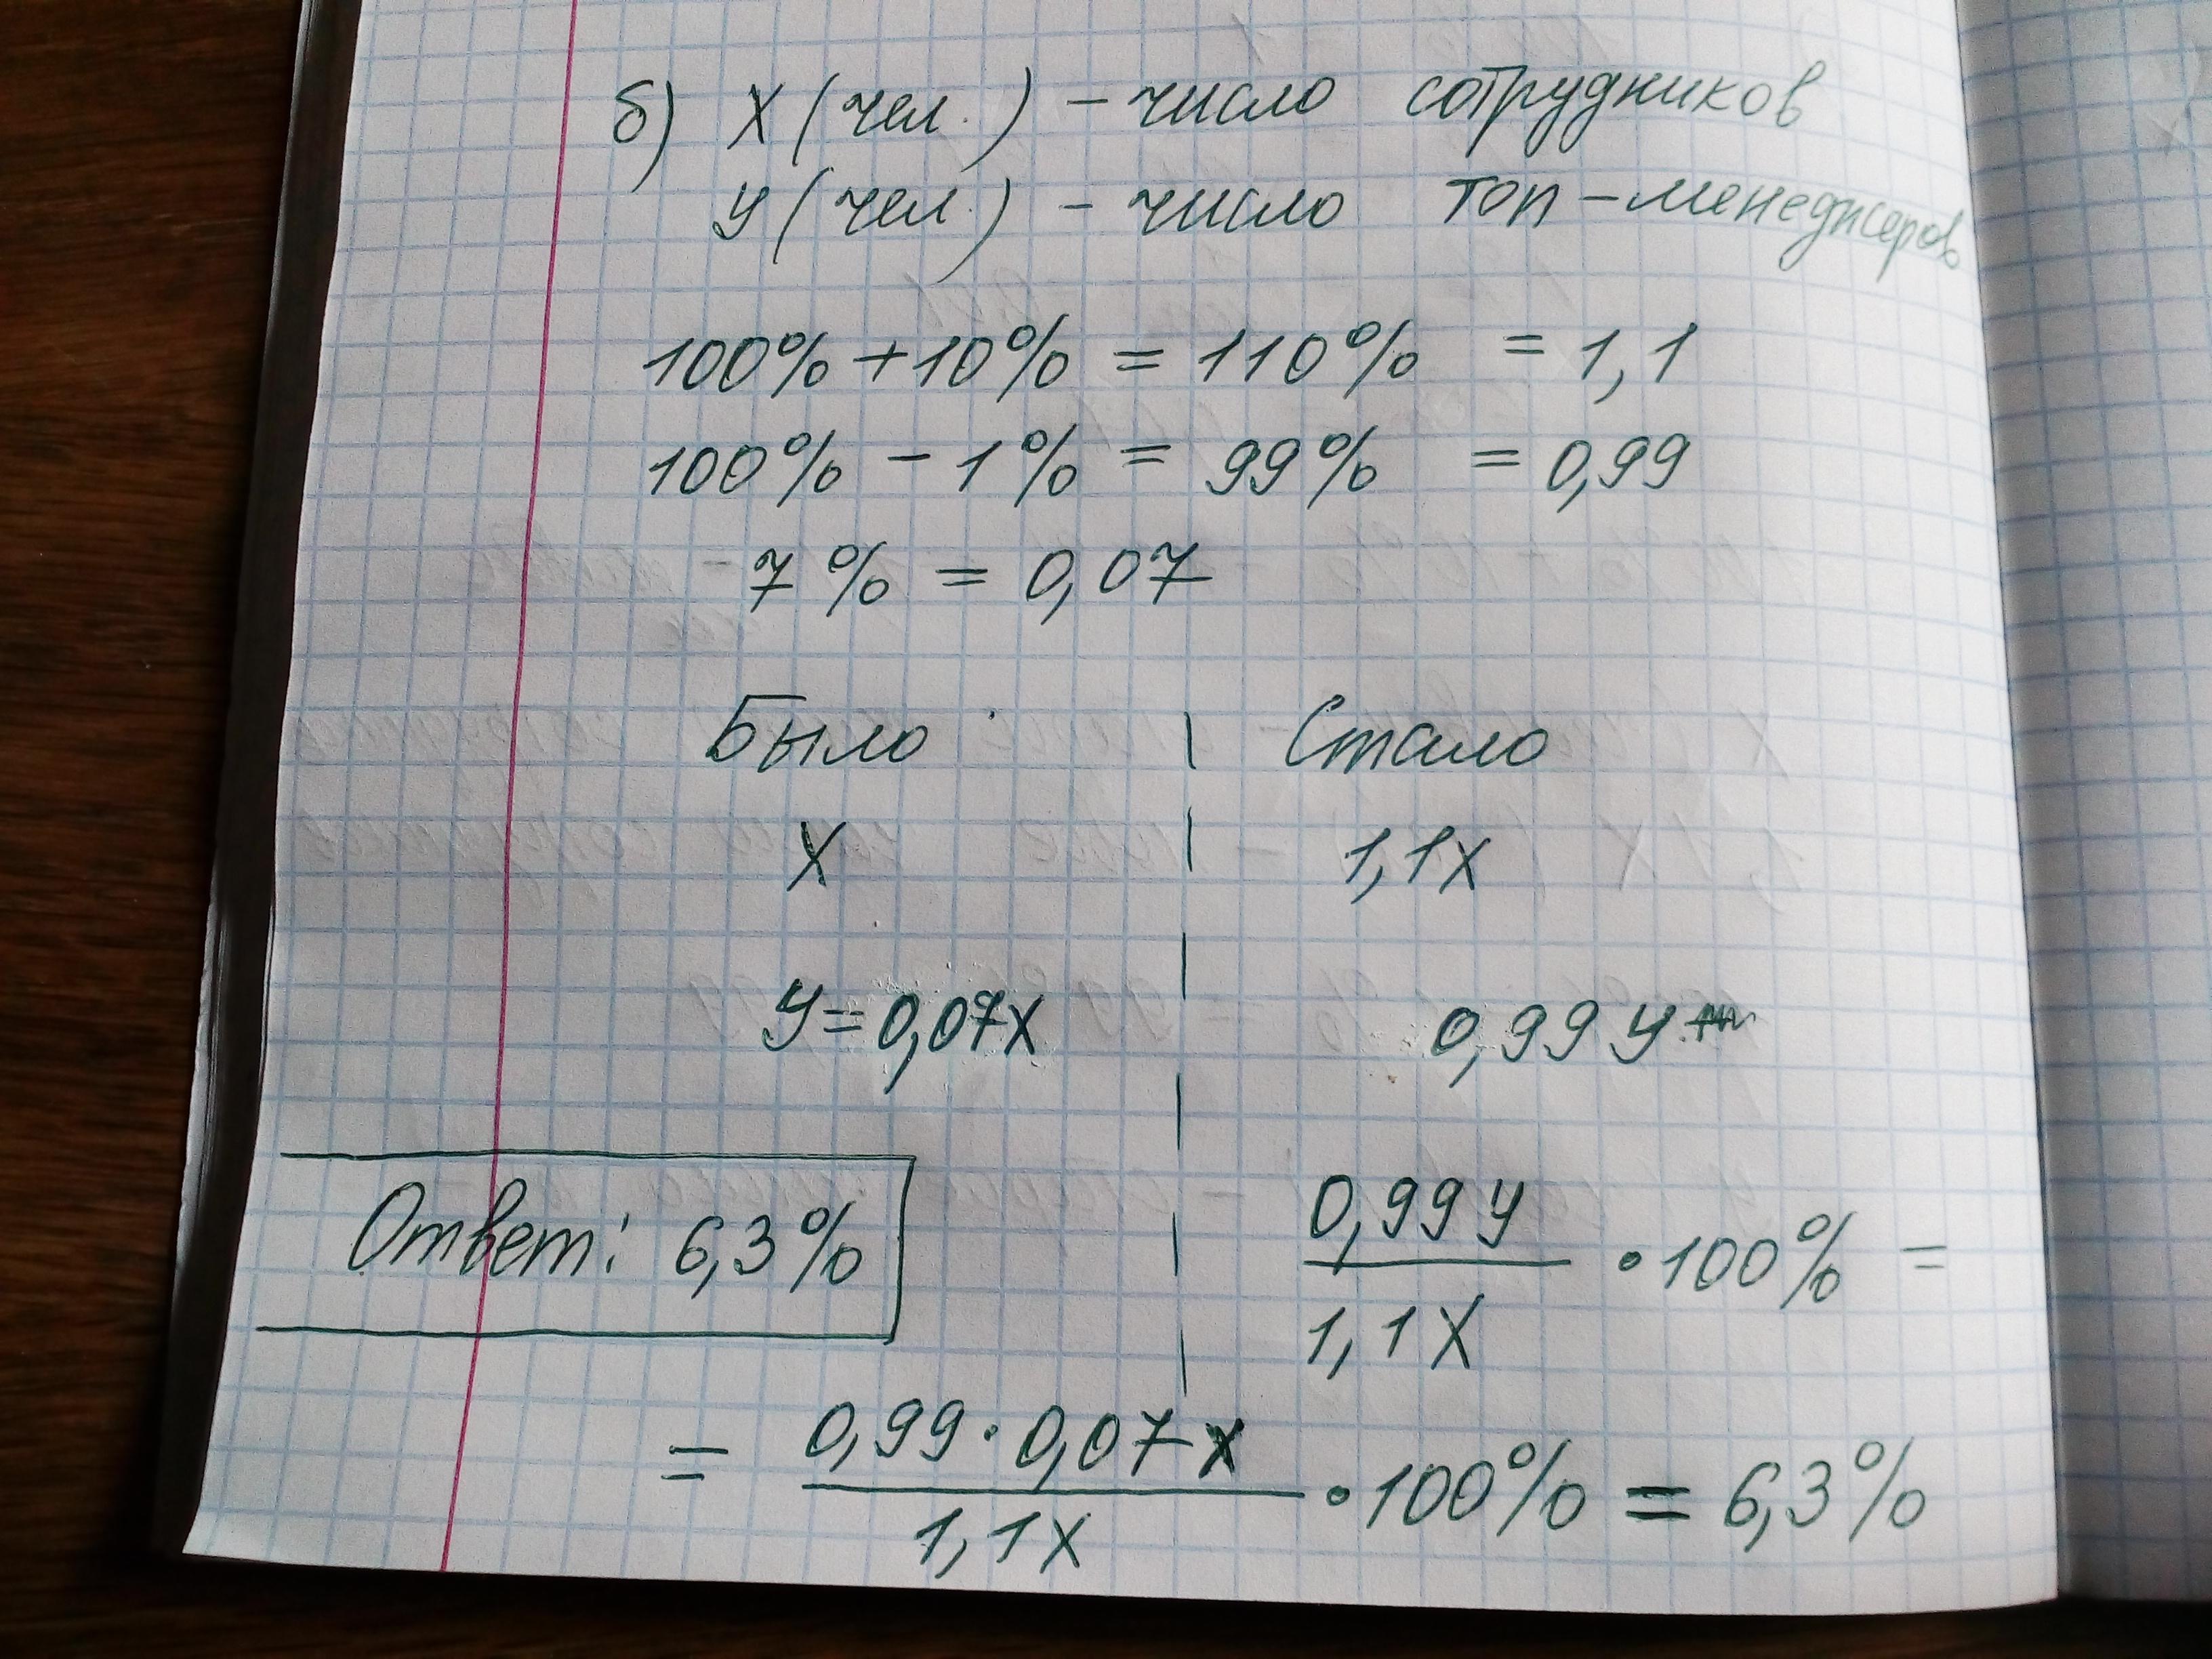 б) X (чел.) – число сотрудников
У (чел.) – число топ-менеджеров
100% + 10% = 110% = 1,1
100% – 1% = 99% = 0,99
7% = 0,07
Было Стало
X 1,1X
У = 0,07X 0,99У
0,99У / 1,1X • 100% =
Ответ: 6,3%
= 0,99 · 0,07X / 1,1X • 100% = 6,3%